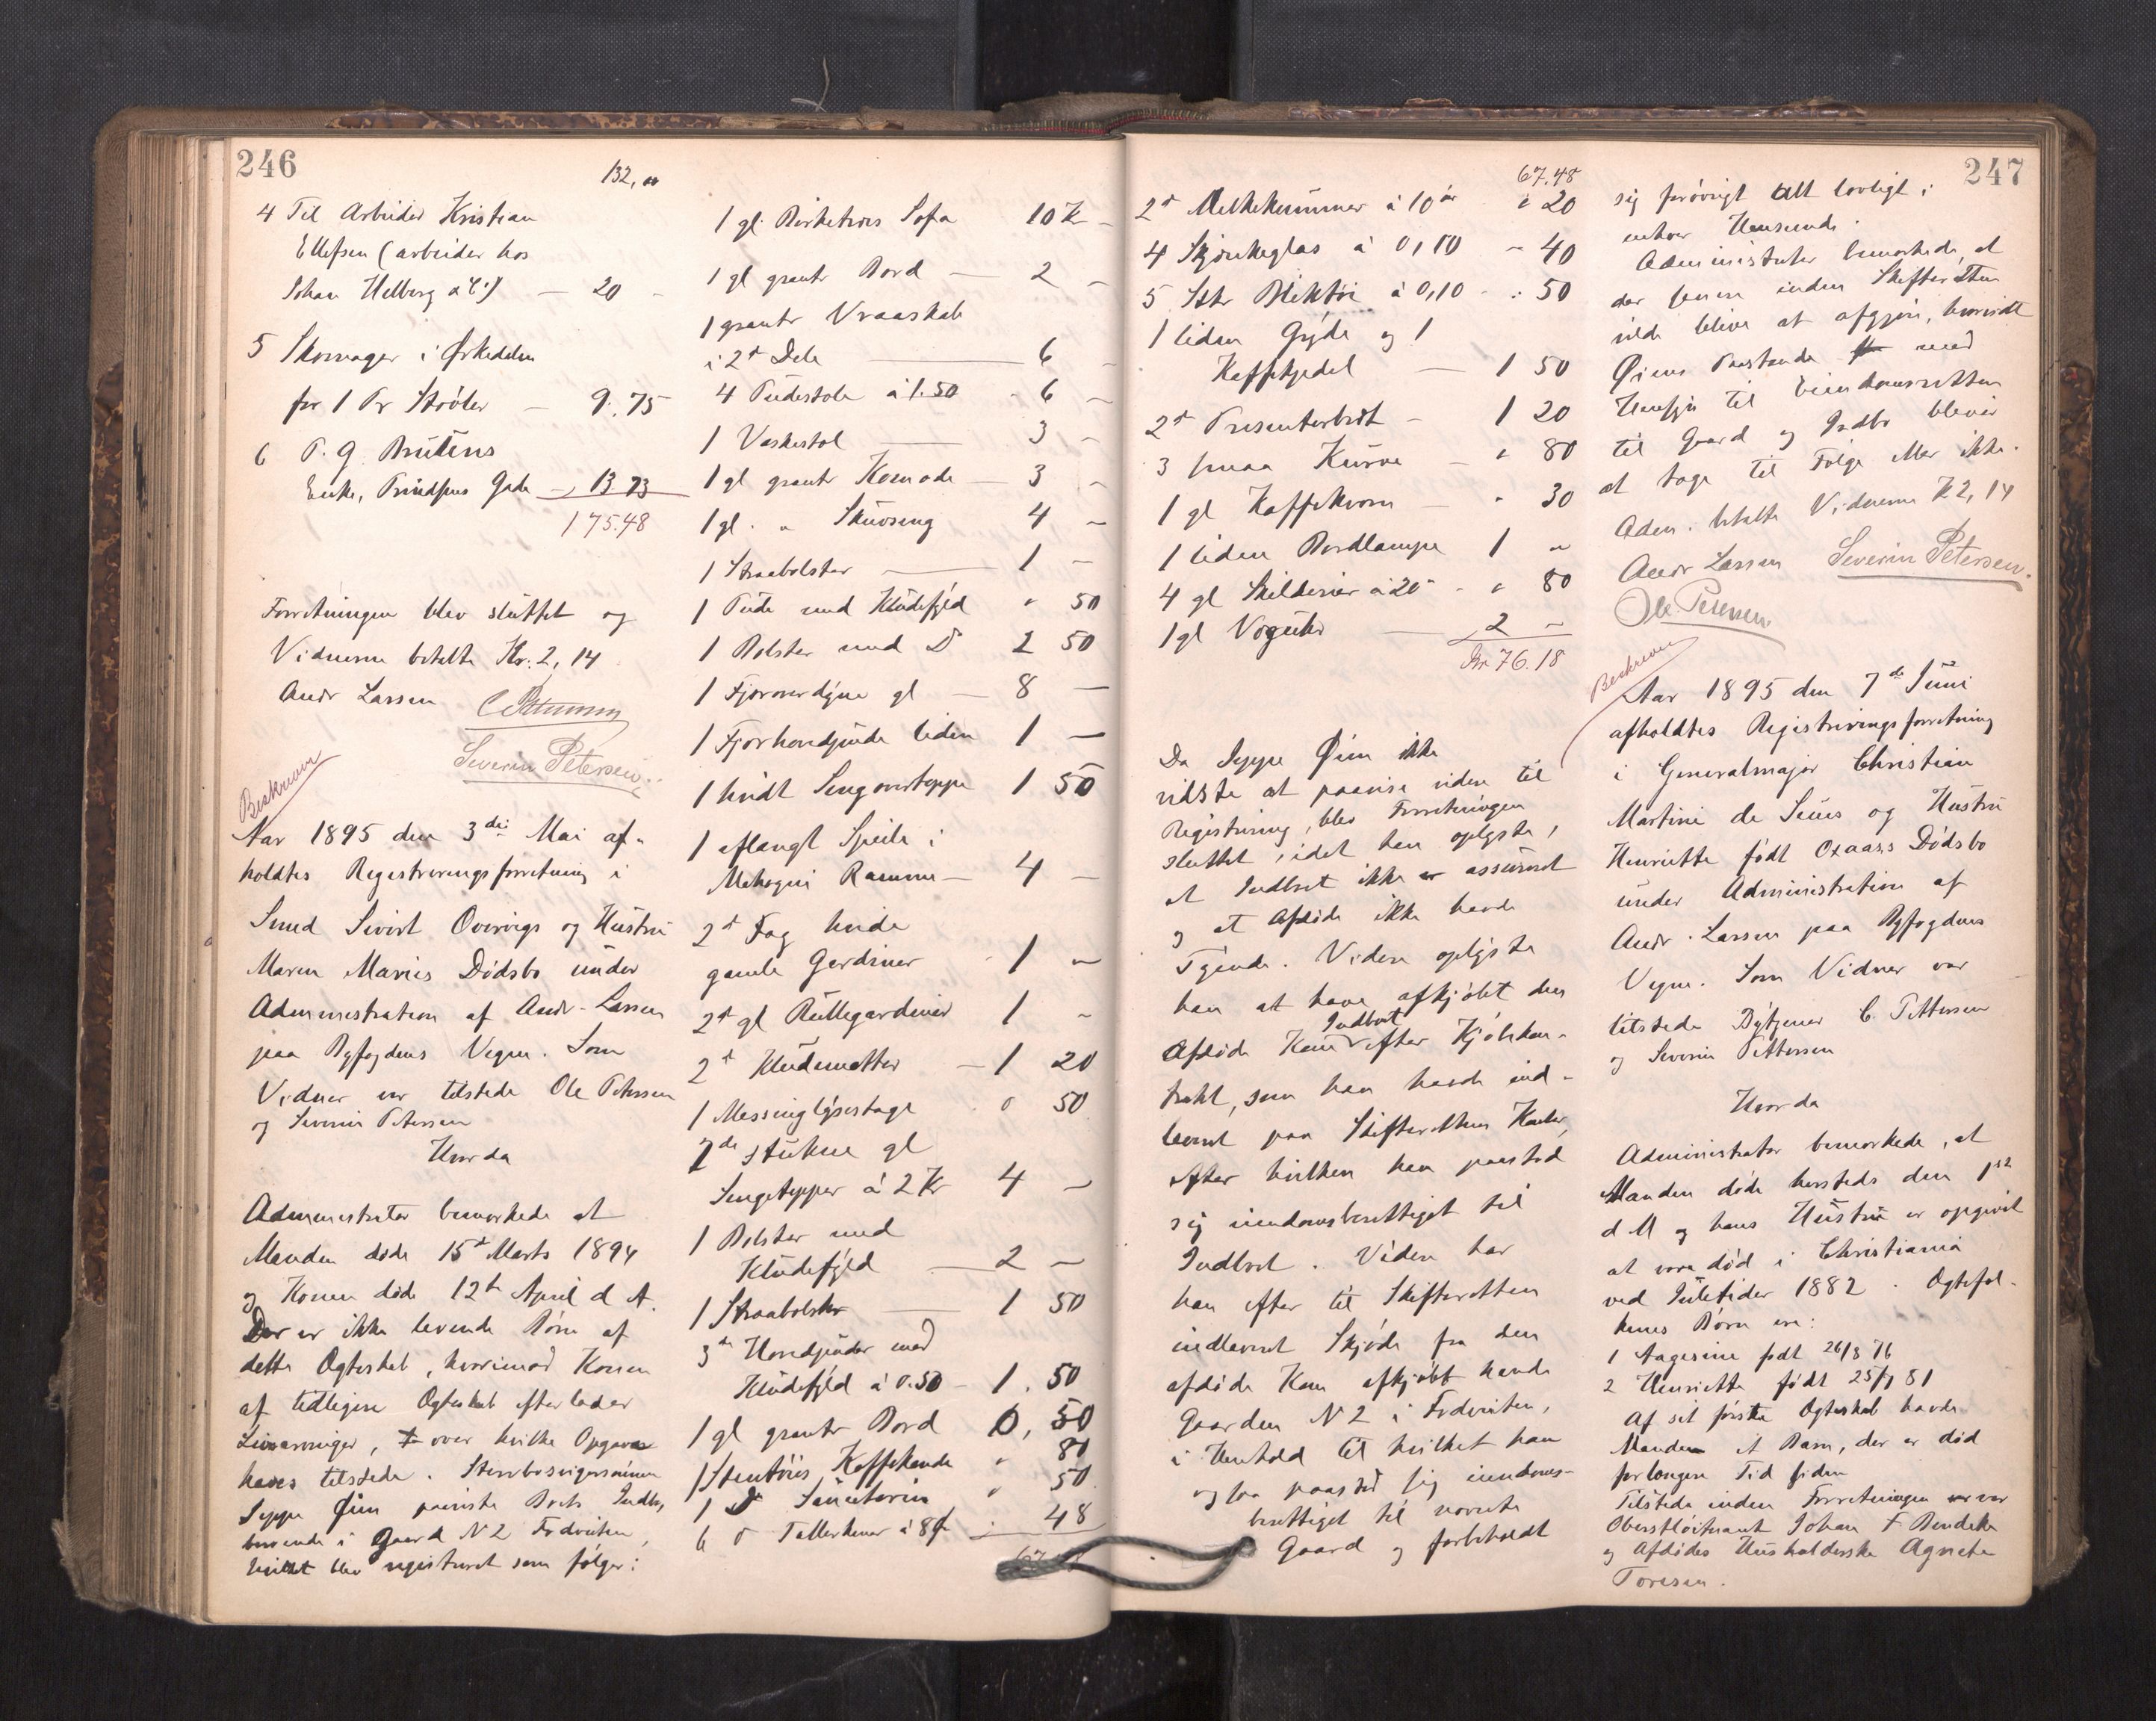 246
132,00
4 Til Arbeider Kristian
Ellefsen (arbeider hos
Johan Helberg & Co) — 20 -
5 Skomager i Ørkedalen
for 1 Pr Støvler — 9.75
6 P. G. Brutens
Enke, Gade — 13 73
175.48
Forretningen blev sluttet og
Vidnerne betalte Kr. 2,14
Andr Larssen
C Pettersen
Severin Petersen
Beskreven
Aar 1895 den 3die Mai af-
holdtes Registreringsforretning i
Smed Sivert Overvigs og Hustru
Maren Maries Dødsbo under
Administration af Andr. Larssen
paa Byfogdens Vegne. Som
Vidner var tilstede Ole Petersen
og Severin Petersen
Hvorda
Administrator bemærkede at
Manden døde 15de Marts 1894
og Konen døde 12te April d A.
Der er ikke levende Børn af
dette Ægteskab, hvorimod Konen
af tidligere Ægteskab efterlader
Livsarvinger, over hvilke Opgave
haves tilstede. Stervbosvigersønnen
Jeppe Øien paaviste Boets Indbo,
beroende i Gaard N 2 Fredvikten,
hvilket blev registreret som følger:
1 gl. Birketræs Sofa 10 K -
1 gl grantr Bord — 2 -
1 grantr Vraaskab
i 2de Dele — 6 -
4 Pudestole à 1.50 - 6 -
1 Vaskestol — 3 -
1 gl grantr Komode — 3 -
1 gl. " Skuvseng 4 -
1 Straabolster — 1 -
1 Pude med Kludefyld " 50
1 Bolster med Do 2 50
1 Fjæroverdyne gl — 8 -
1 Fjærhovedpude liden 1 -
1 hvidt Sengovertæppe 1 50
1 aflangt Speile i
Mahogni Ramme — 4 -
2de Fag hvide
gamle Gardiner - 1 -
2de gl Rullegardiner 1 -
2de Kludematter — 1 20
1 Messinglysestage " 50
2de strukne gl
Sengetæpper à 2 Kr 4 -
1 Bolster med
Kludefyld — 2 -
1 Straabolster — 1 50
3de Hovedpuder med
Kludefyld à 0.50 - 1. 50
1 gl grantr Bord 0, 50
1 Stentøies Kaffekande " 80
1 Do " 50
6 Do Tallerkener à 8 Ø " 48
247
67.48
2de Melkekummer à 10 ør " 20
4 Skjænkeglas à 0,10 " 40
5 Stkr Bliktøi à 0,10 - " 50
1 liden Gryde og 1
Kaffekjedel — 1 50
2de Presenterbret - 1 20
3 smaa Kurve - " 80
1 gl Kaffekværn — " 30
1 liden Bordlampe 1 "
4 gl Skilderier à 20 - " 80
1 gl Væguhr — 2 -
Kr 76.18
Da Jeppe Øien ikke
vidste at paavise videre til
Registrering, blev Forretningen
sluttet, idet han oplyste,
at Indboet ikke er assureret
og at Afdøde ikke havde
Tyende. Videre oplyste
han at have afkjøbt den
Afdøde Kone Indboet efter Kjøbekon-
trakt, som han havde ind-
leveret paa Skifterettens Kontor,
efter hvilken han paastod
sig eiendomsberettiget til
Indboet. Videre har
han efter til Skifteretten
indleveret Skjøde fra den
afdøde Kone afkjøbt hende
Gaarden N 2 i Fredvikten,
i Henhold til hvilket han
ogsaa paastod sig eiendoms-
berettiget til nævnte
Gaard og forbeholdt
sig forøvrigt Alt lovligt i
enhver Henseende.
Administrator bemærkede, at
der senere inden Skifteretten
vilde blive at afgjøre, hvorvidt
Øiens Paastande med
Hensyn til Eiendomsretten
til Gaard og Indbo bliver
at tage til Følge eller ikke.
Adm. betalte Vidnerne K 2,14
Andr Larssen Severin Petersen.
Ole Petersen
Beskreven
Aar 1895 den 7de Juni
afholdtes Registreringsforretning
i Generalmajor Christian
Martini de Seues og Hustru
Henriette født Dødsbo
under Administration af
Andr. Larssen paa Byfogdens
Vegne. Som Vidner var
tilstede Bytjener C. Pettersen
og Severin Pettersen
Hvorda
Administrator bemærkede, at
Manden døde hersteds den 1ste
d M og hans Hustru er opgivet
at være død i Christiania
ved Juletider 1882. Ægtefol-
kenes Børn ere:
1 Aagesine født 26/8 76
2 Henriette født 25/7 81
Af sit første Ægteskab havde
Manden et Barn, der er død
for længere Tid siden
Tilstede inden Forretningen var
Oberstløitnant Johan F Bendeke
og Afdødes Husholderske Agnete
Toresen.